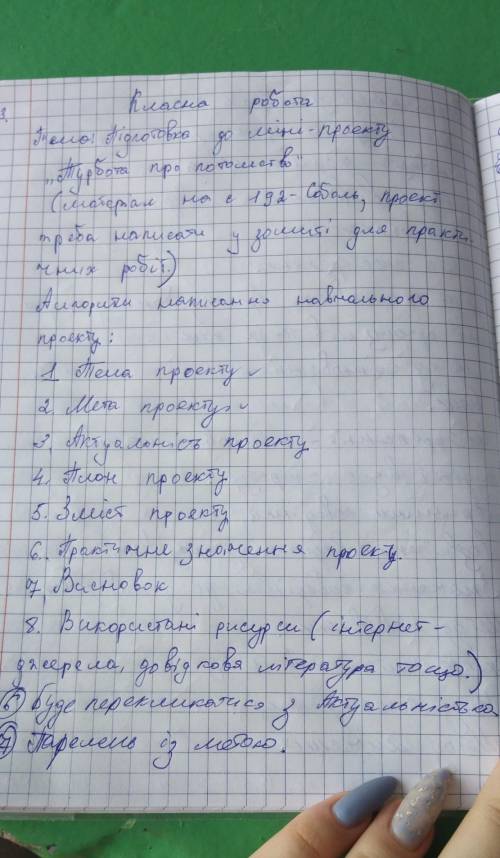 Класна робота
Тема: Підготовка до міні-проекту
„Турбота про потомство"
(матеріал на с 192-Соболь, проект
треба написати у зошиті для практи
чних робіт.)
Алгоритм написання навчального
проекту:
1 Тема проекту
2 Мета проекту
3. Актуальність проекту
4. План проекту
5. Зміст проекту
6. Практичне значення проекту.
7. Висновок
8. Використані рисурси (інтернет-
джерела, довідковя література тощо.)
6 Буде перекликатися з Актуальністю
7 із метою.